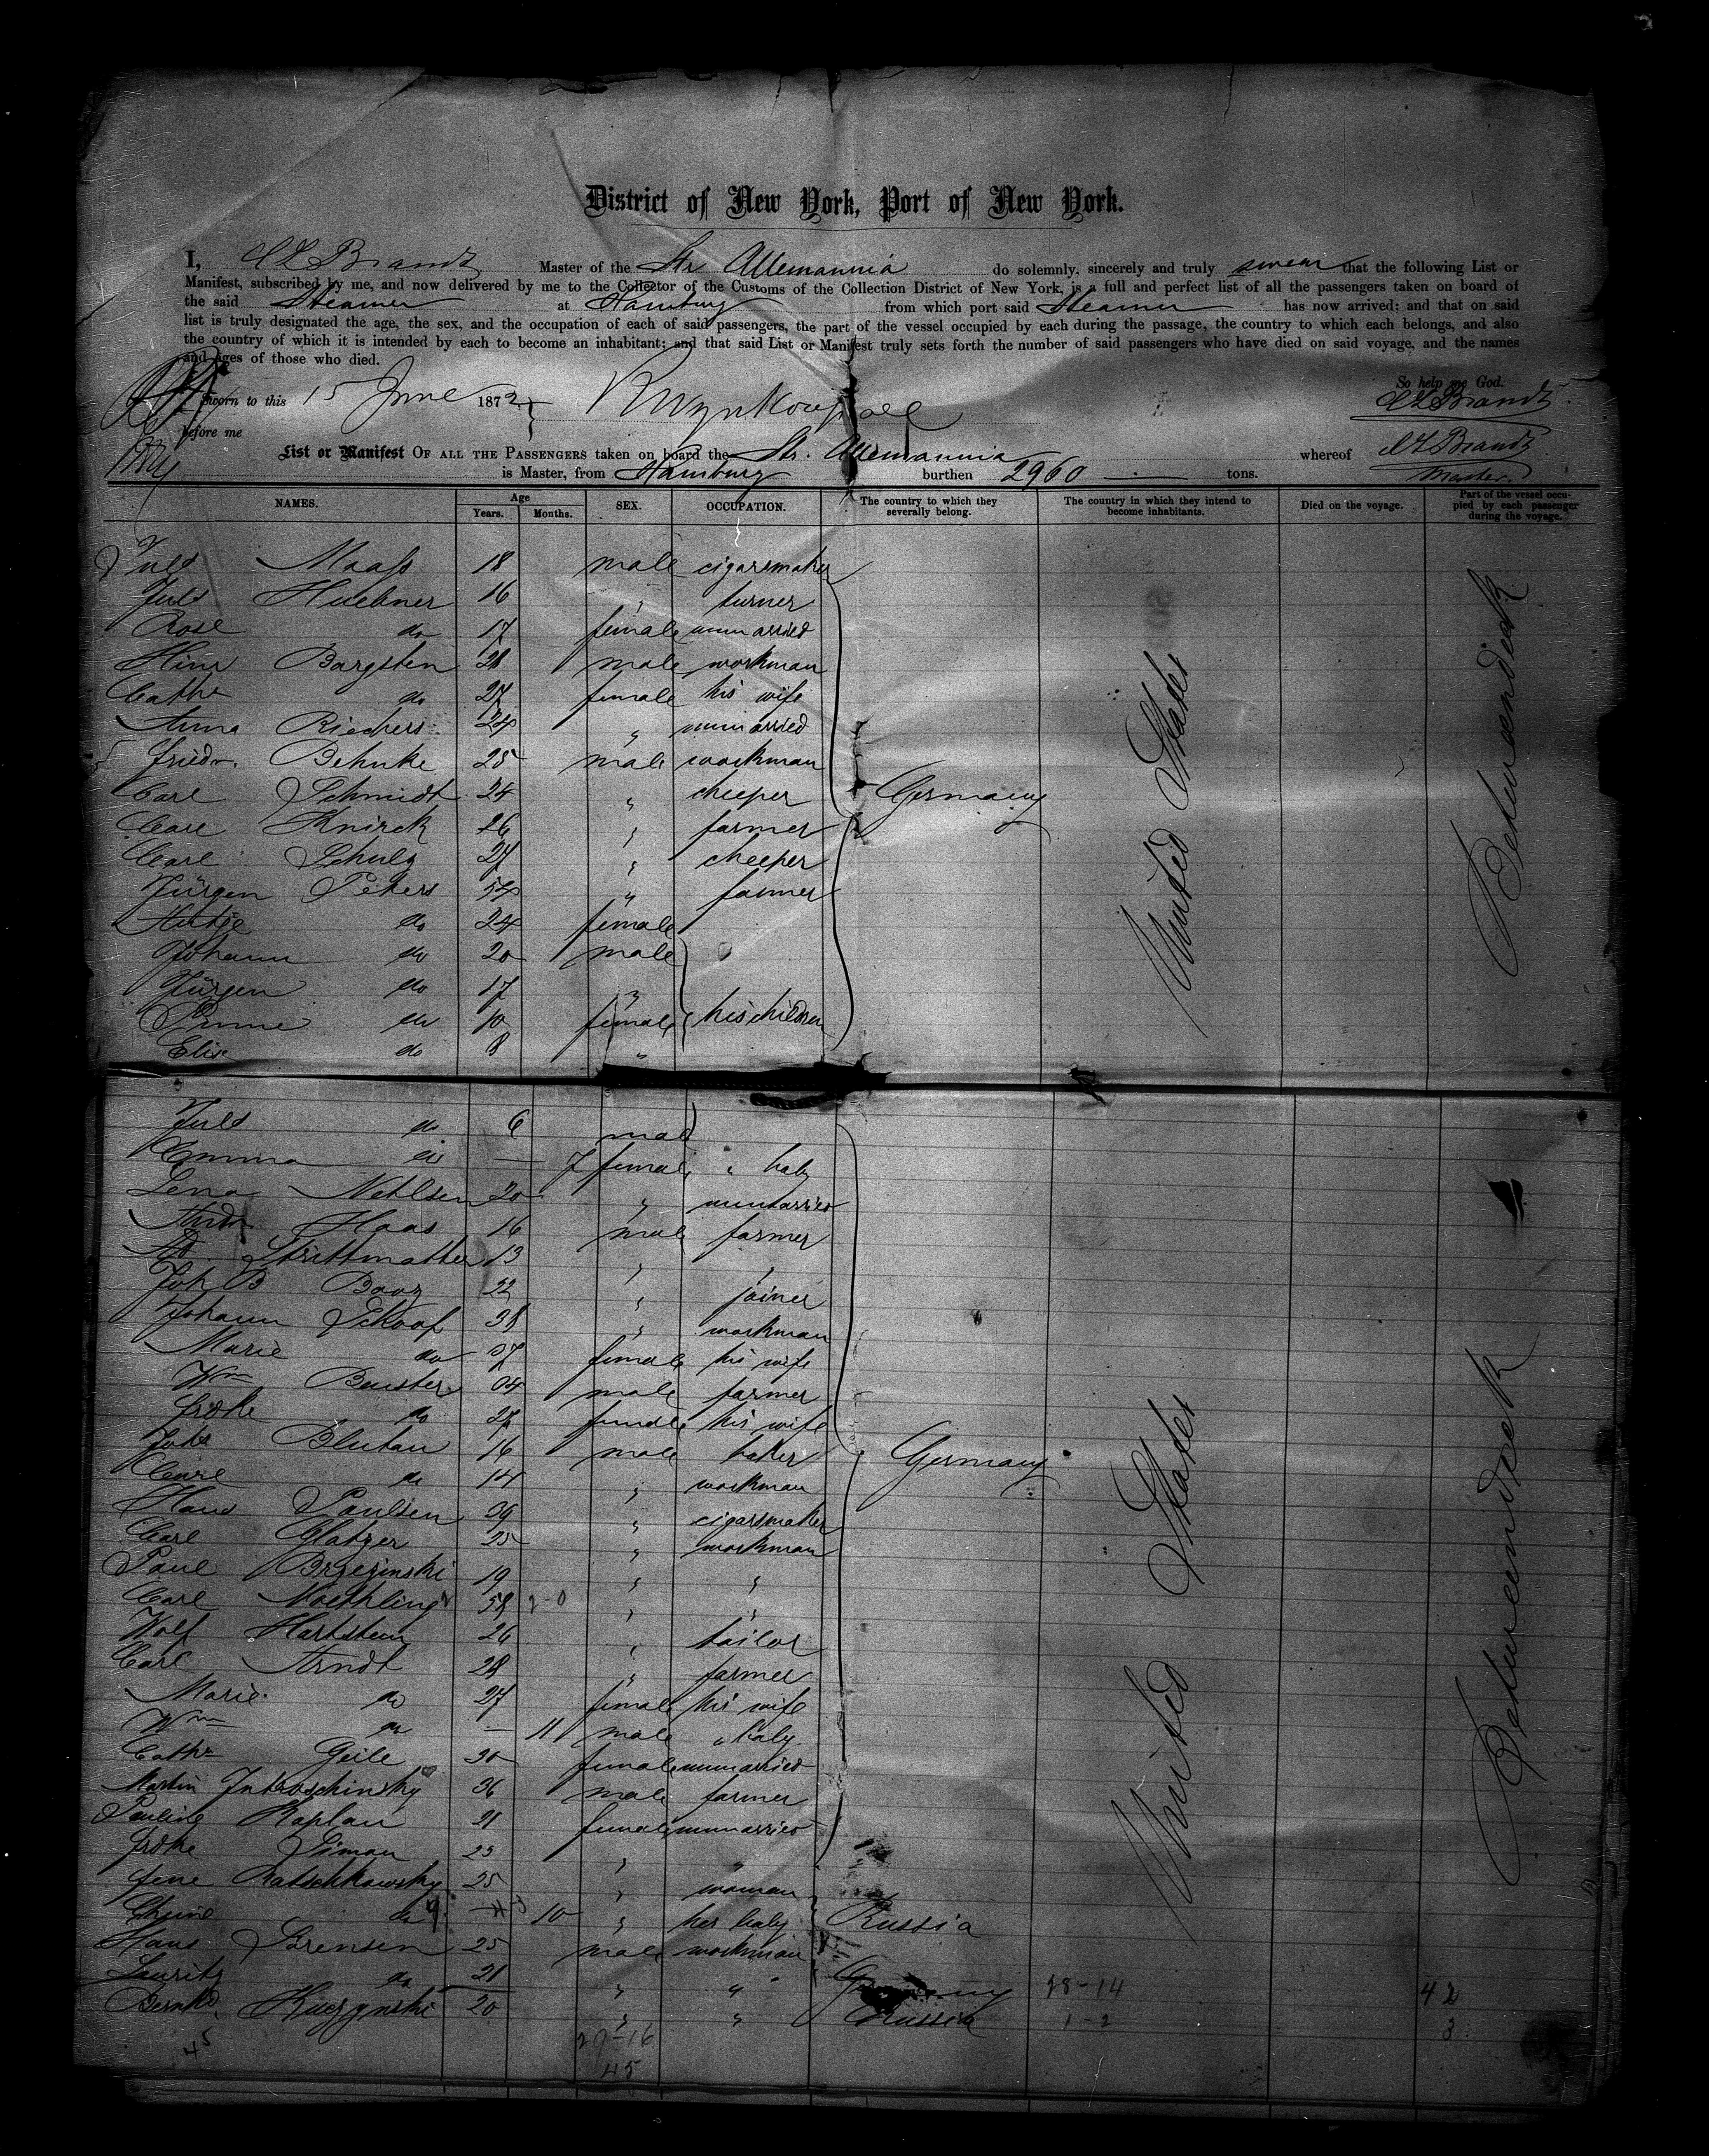 District of New York, Port of New York.
I, Brandt Master of the Str Allemannia do solemnly, sincerely and truly swear that the following List or
Manifest, subscribed by me, and now delivered by me to the Collector of the Customs of the Collection District of New York, is a full and perfect list of all the passengers taken on board of
the said Steamer at Hamburg from which port said Steamer has now arrived; and that on said
list is truly designated the age, the sex, and the occupation of each of said passengers, the part of the vessel occupied by each during the passage, the country to which each belongs, and also
the country of which it is intended by each to become an inhabitant; and that said List or Manifest truly sets forth the number of said passengers who have died on said voyage, and the names
and ages of those who died.
So help me God.
Sworn to this 15 June 1872 Brandt
before me
List or Manifest OF ALL THE PASSENGERS taken on board the Str. Allemannia whereof Brandt
is Master, from Hamburg burthen 2960 tons. Master.
NAMES. Age Years. Months. SEX. OCCUPATION. The country to which they severally belong. The country in which they intend to become inhabitants. Died on the voyage. Part of the vessel occupied by each passenger during the voyage.
Juls Maass 18 male cigarsmaker
Juls Huebner 16 " turner
Rose do 17 female unmarried
Hinr Bargsten 28 male workman
Cathr do 27 female his wife
Anna Riechers 24 " unmarried
Friedr. Behnke 25 male workman
Carl Schmidt 24 " cheeper Germany
Carl Knirck 26 " farmer
Carl Schulz 27 " cheeper
Jürgen Peters 54 " farmer
do 24 female
Johann do 20 male
Jürgen do 17 "
do 10 female his children
Elise do 8 "
United States
Betweendeck
Juls do 6 male
Emma do — 7 female " baby
Lena Nehlsen 20 " unmarried
Haas 16 male farmer
Ad Strittmatter 13 " "
Joh B Booz 22 " joiner
Johann Schoof 38 " workman
Marie do 37 female his wife
Wm 34 male farmer
Fridke do 27 female his wife
Johs Blutau 16 male baker
Carl do 14 " workman Germany
Hans Paulsen 39 " cigarsmaker
Carl Glatzer 25 " workman
Paul Brzezinski 19 " "
Carl Moethling 58 " "
Wolf Hartstein 26 " tailor
Carl Arndt 28 " farmer
Marie do 27 female his wife
Wm do — 11 male " baby
Cathr Geile 30 female unmarried
Martin Jutroschinsky 36 male farmer
Pauline Kaplan 21 female unmarried
Fridke Siman 23 " "
Jene Ratschkowsky 25 " woman
do — 10 " her baby Russia
Hans Sörensen 25 male workman
Lauritz do 21 " " Germany 28-14 42
Bernhd. Kuczynski 20 " " Russia 1-2 3
United States
Betweendeck
45
29-16
45